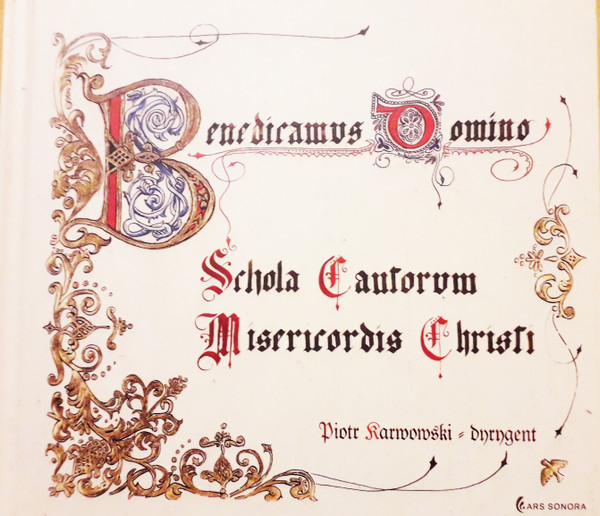 Benedicamvs Domino
Schola Cantorvm
Misericordis Christi
Piotr Karwowski = dyrygent
ARS SONORA